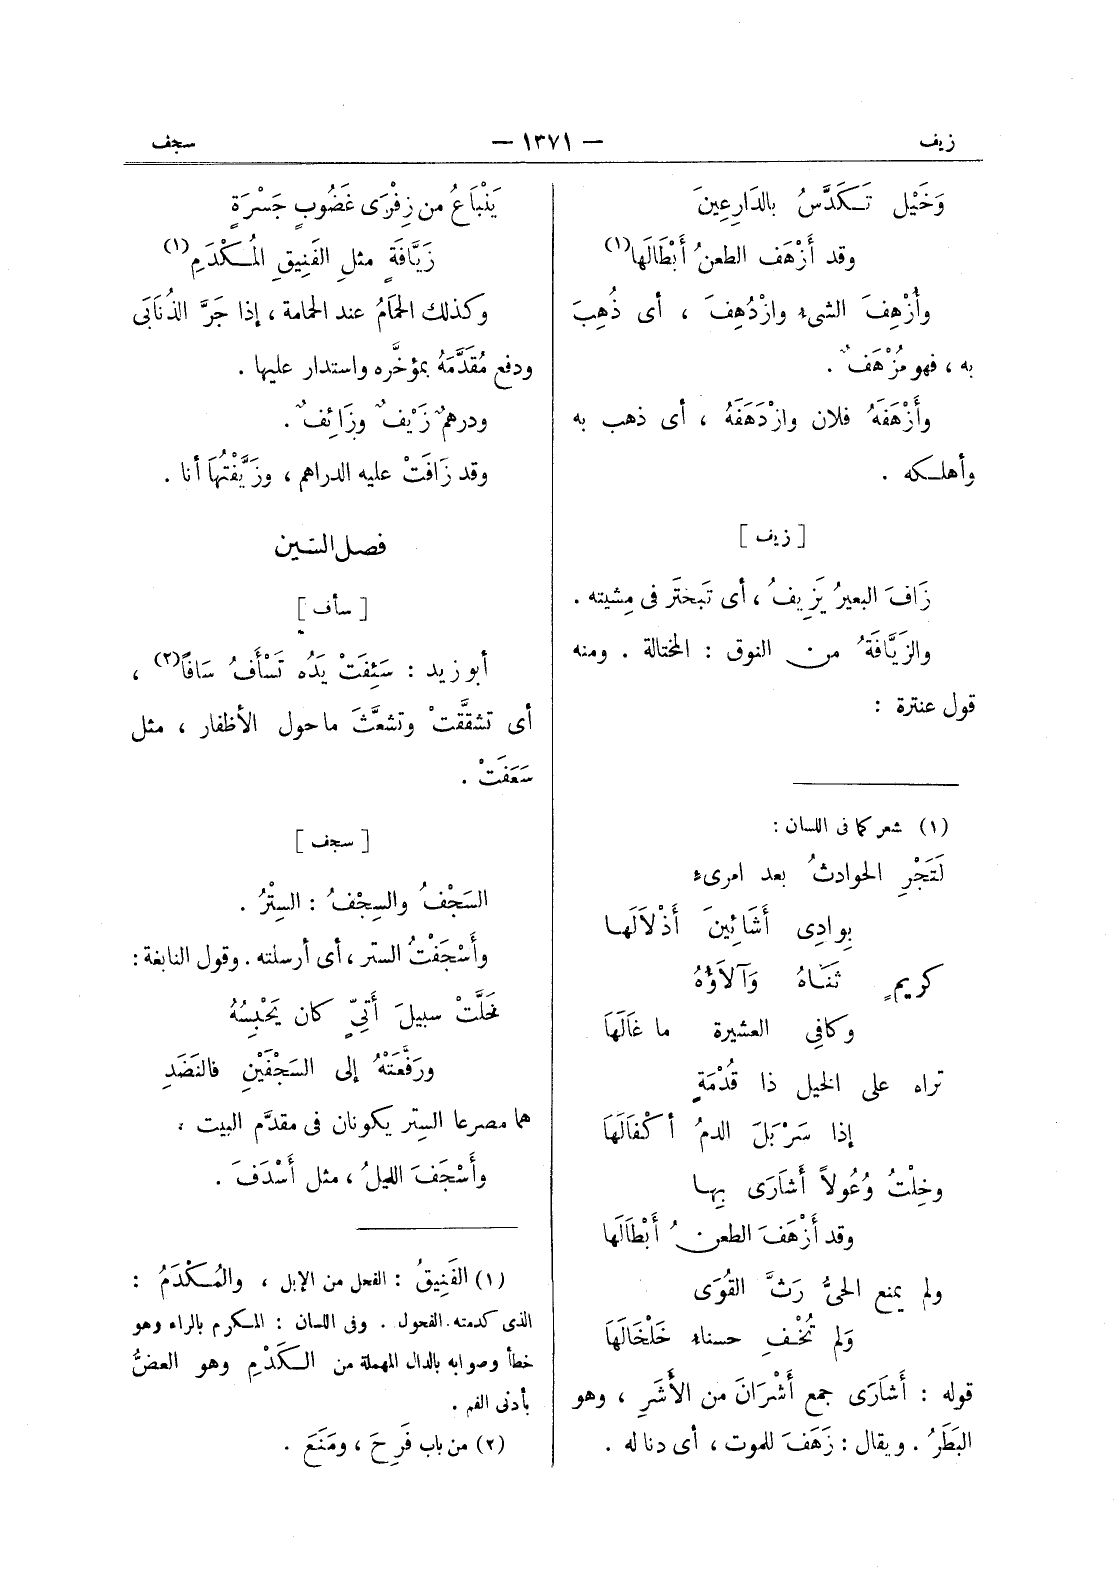 زيف
— ١٣٧١ —
سجف
وَخَيْل تَكَدَّسُ بالدَارِعِينَ
وقد أَزْهَف الطعنُ أَبْطَالَها(١)
وأُزْهِفَ الشىء وازْدُهِفَ ، أى ذُهِبَ
به ، فهو مُزْهَفٌ .
وأَزْهَفَهُ فلان وازْدَهَفَهُ ، أى ذهب به
وأهلكه .
[ زيف ]
زَافَ البعيرُ يَزِيفُ ، أى تَبختَر فى مِشيته .
والزَيَّافَةُ من النوق : المختالة . ومنه
قول عنترة :
(١) شعر كما فى اللسان :
لَتَجْرِ الحوادثُ بعد امرىء
بوادِى أَشَائِينَ أَذْلاَلَها
كريمٍ ثَنَاهُ وَآلاَؤُهُ
وكافِى العشيرة ما غَالَهَا
تراه على الخيل ذا قُدْمَةٍ
إذا سَرْبَلَ الدمُ أكْفَالَهَا
وخِلْتُ وُعُولاً أَشَارَى بِها
وقد أَزْهَفَ الطعنُ أَبْطَالَها
ولم يمنع الحىُّ رَثَّ القُوَى
وَلم تُخْفِ حسناء خَلْخَالَهَا
قوله : أَشَارَى جمع أَشْرَانَ من الأَشَرِ ، وهو
البَطَرُ . ويقال : زَهَفَ للموت ، أى دنا له .
يَنْبَاعُ من ذِفْرَى غَضُوبٍ جَسْرَةٍ
زَيَّافَةٍ مثلِ الفَنِيقِ المُكْدَمِ(١)
وكذلك الحمَامُ عند الحمامة ، إذا جَرَّ الذُنَابَى
ودفع مُقَدَّمَهُ بمؤخَّره واستدار عليها .
ودرهمٌ زَيْفٌ وزَائِفٌ .
وقد زَافَتْ عليه الدراهم ، وزَيَّفْتُهَا أنا .
فصل السّين
[ سأف ]
أبو زيد : سَئِفَتْ يَدُه تَسْأَفُ سَافًا(٢) ،
أى تشقَّقت وتشعَّثَ ماحول الأظفار ، مثل
سَعَفَتْ .
[ سجف ]
السَجْفُ والسِجْفُ : السِتْرُ .
وأَسْجَفْتُ الستر ، أى أرسلته . وقول النابغة :
خَلَّتْ سبيلَ أَتِىٍّ كان يَحْبِسُهُ
ورَفَّعَتْهُ إلى السَجْفَيْنِ فالنَضَدِ
هما مصرعا السِتر يكونان فى مقدَّم البيت ،
وأَسْجَفَ الليلُ ، مثل أَسْدَفَ .
(١) الفَنِيقُ : الفحل من الإبل ، والمُكْدَمُ :
الذى كدمته الفحول . وفى اللسان : المكرم بالراء وهو
خطأ وصوابه بالدال المهملة من الكَدْمِ وهو العضُّ
بأدنى الفم .
(٢) من باب فَرِحَ ، ومَنَعَ .